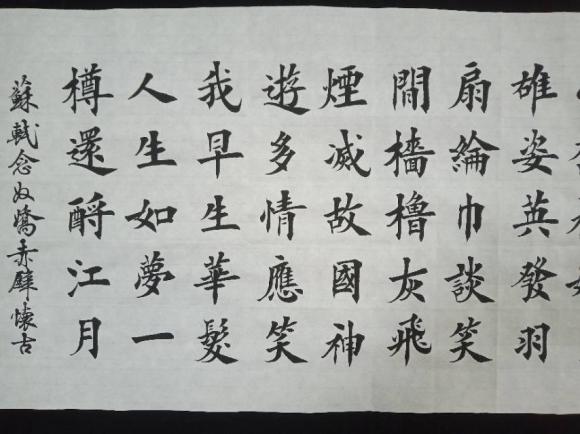 雄姿英發羽
扇綸巾談笑
間檣櫓灰飛
煙滅故國神
遊多情應笑
我早生華髮
人生如夢一
樽還酹江月
蘇軾念奴嬌赤壁懷古